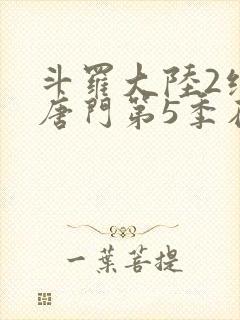 斗羅大陸2
唐門第5季
一葉菩提